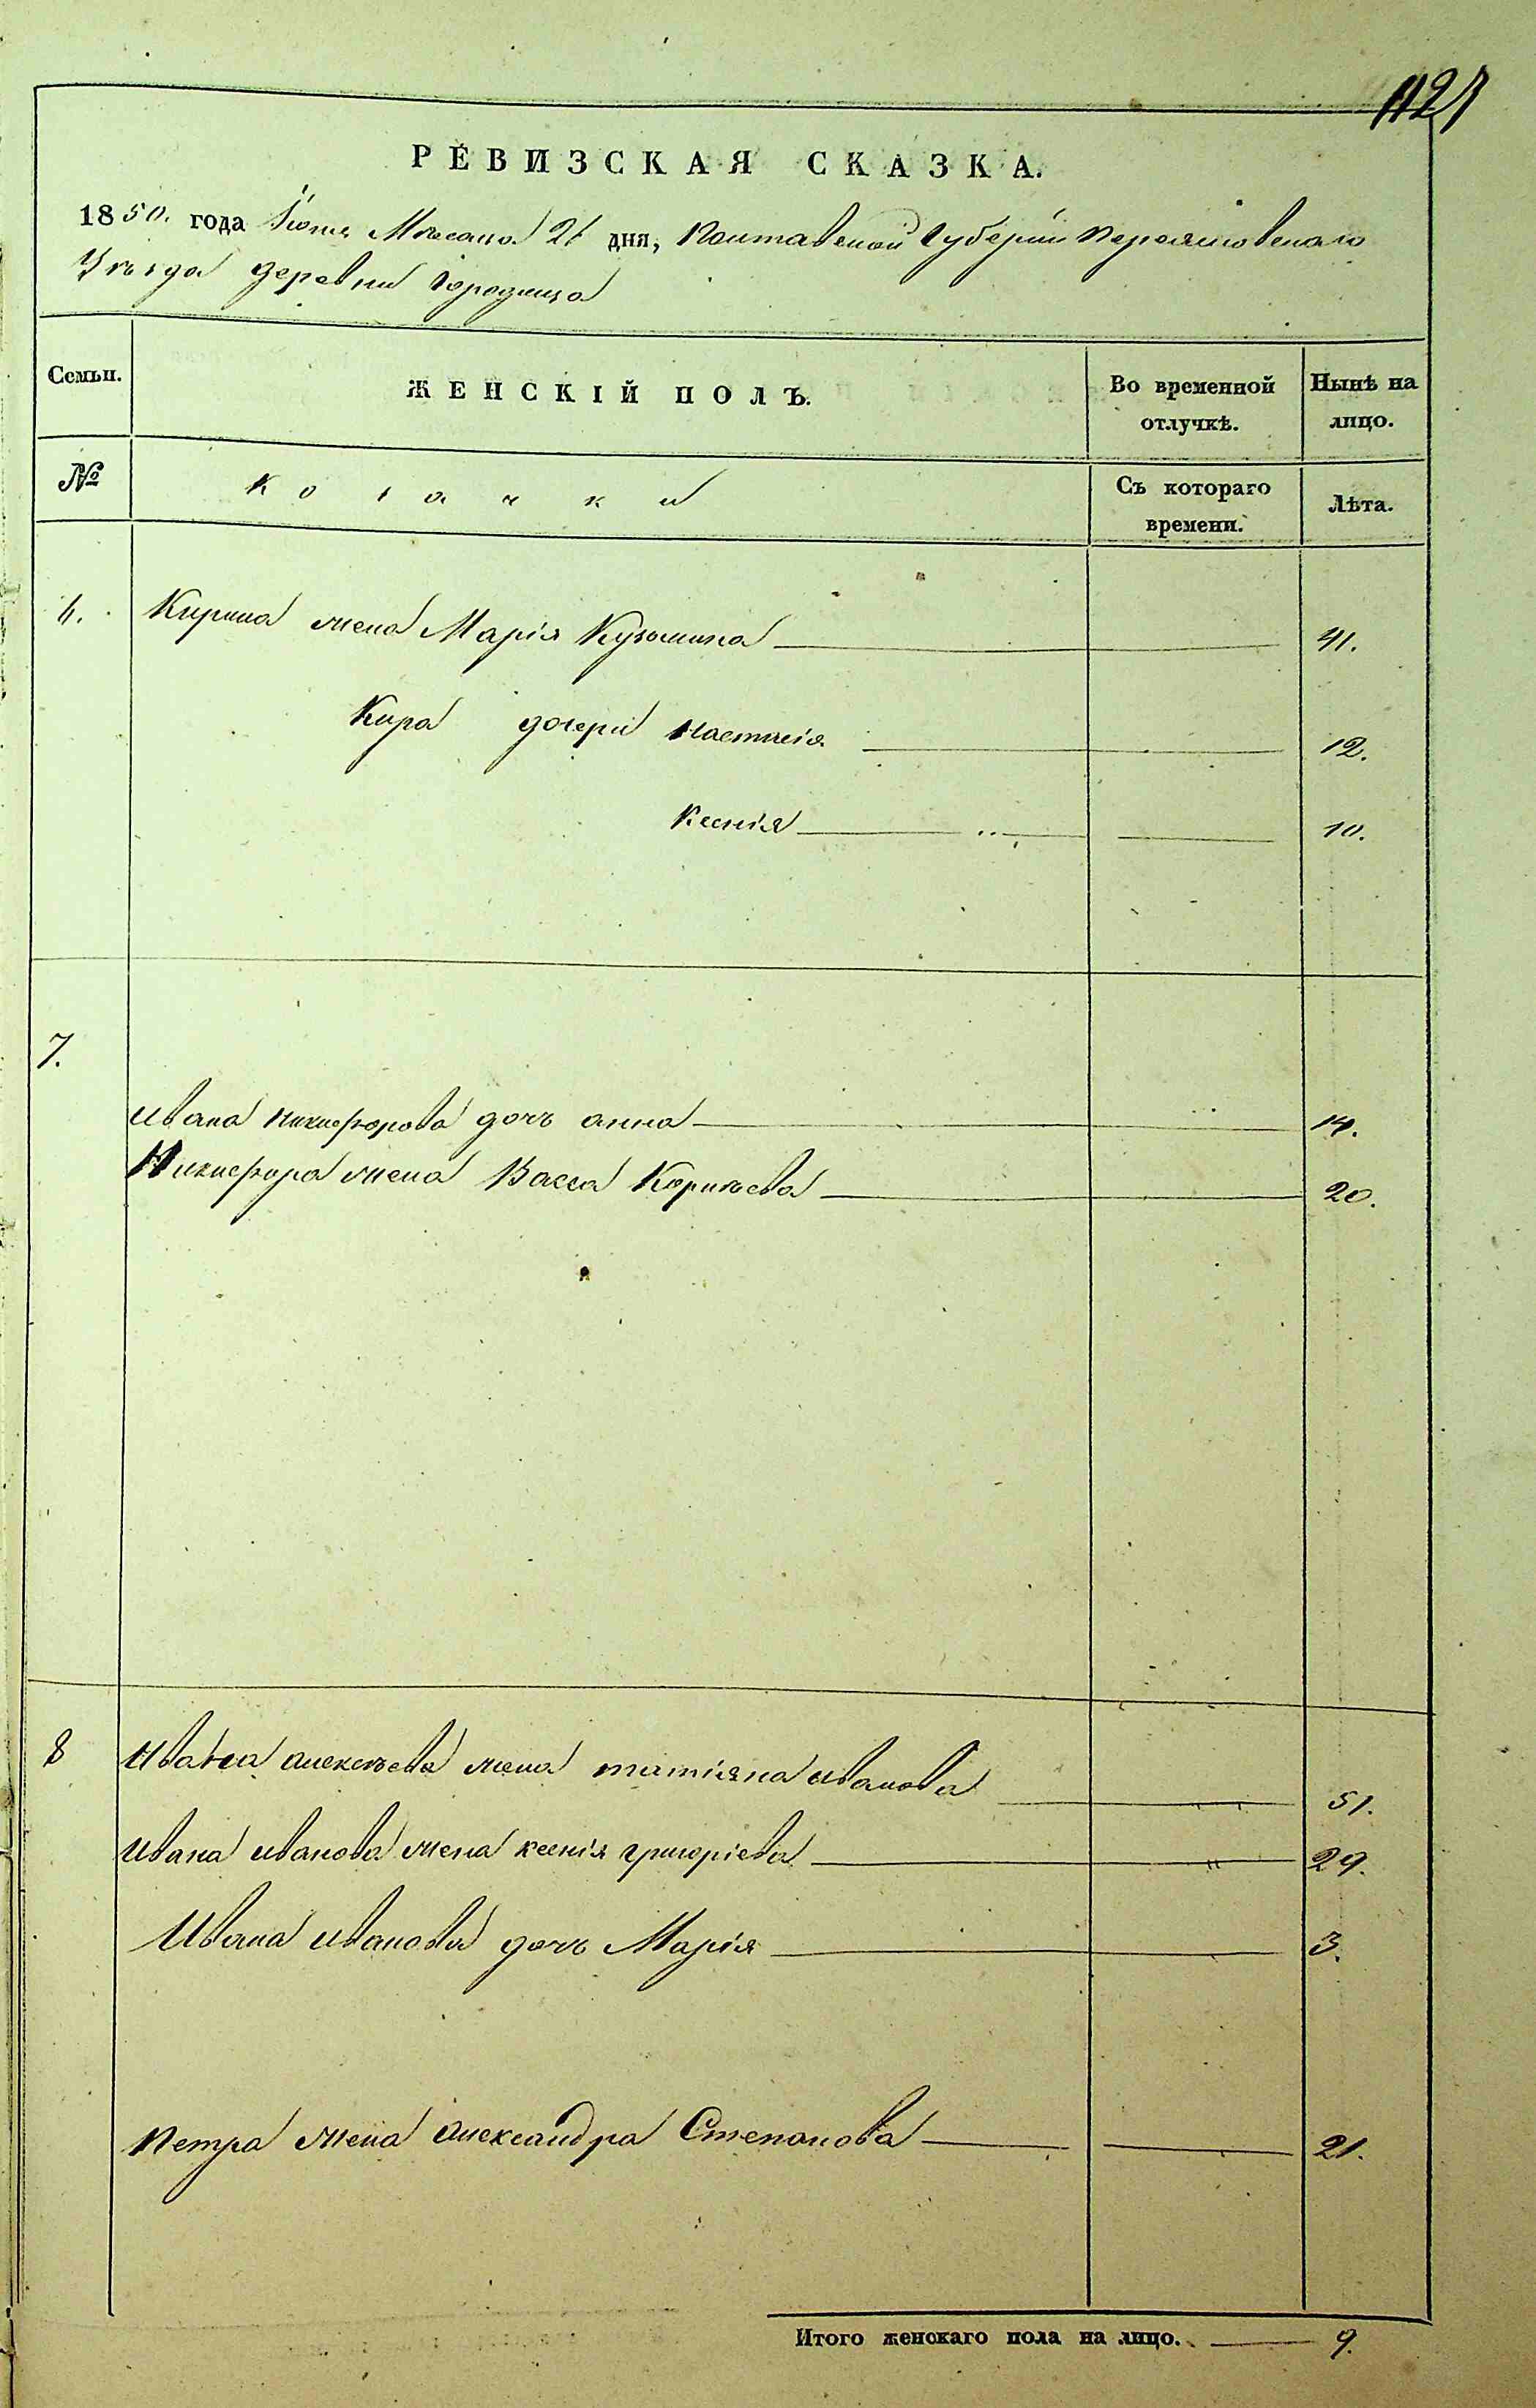 1121
РЕВИЗСКАЯ СКАЗКА.
1850. года Іюня Мѣсяца 21 дня, Полтавской Губерніи Переяславскаго
Уѣзда деревни Городища
Семьи.
ЖЕНСКІЙ ПОЛЪ.
Во временной отлучкѣ.
Ныне на лицо.
№
Козачки
Съ котораго времени.
Лѣта.
6. Кирила жена Марія Кузьмина 41.
Кира дочери Настасія 12.
Ксенія 10.
7.
Ивана Никифорова дочь анна 14.
Никифора жена Васса Корнѣева 20.
8 Ивана алексѣева жена татіяна иванова 51.
Ивана иванова жена ксенія григоріева 29.
Ивана иванова дочь Марія 3.
Петра жена александра Степанова 21.
Итого женскаго пола на лицо. 9.